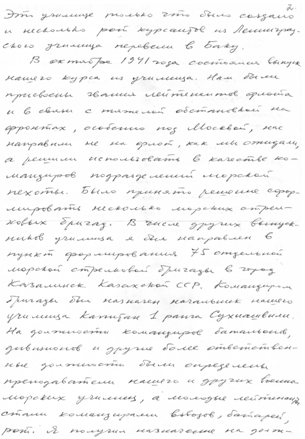 2.
Это училище только что было создано
и несколько рот курсантов из Ленинград-
ского училища перевели в Баку.
В октябре 1941 года состоялся выпуск
нашего курса из училища. Нам были
присвоены звания лейтенантов флота
и в связи с тяжелой обстановкой на
фронтах, особенно под Москвой, нас
направили не на флот, как мы ожидали,
а решили использовать в качестве ко-
мандиров подразделений морской
пехоты. Было принято решение сфор-
мировать несколько морских стрел-
ковых бригад. В числе других выпуск-
ников училища я был направлен в
пункт формирования 75 отдельной
морской стрелковой бригады в город
Казалинск Казахской ССР. Командиром
бригады был назначен начальник нашего
училища Капитан 1 ранга Сухиашвили.
На должности командиров батальонов,
дивизионов и другие более ответствен-
ные должности были определены
преподаватели нашего и других военно
морских училищ, а молодые лейтенанты
стали командирами взводов, батарей,
рот. Я получил назначение на долж-